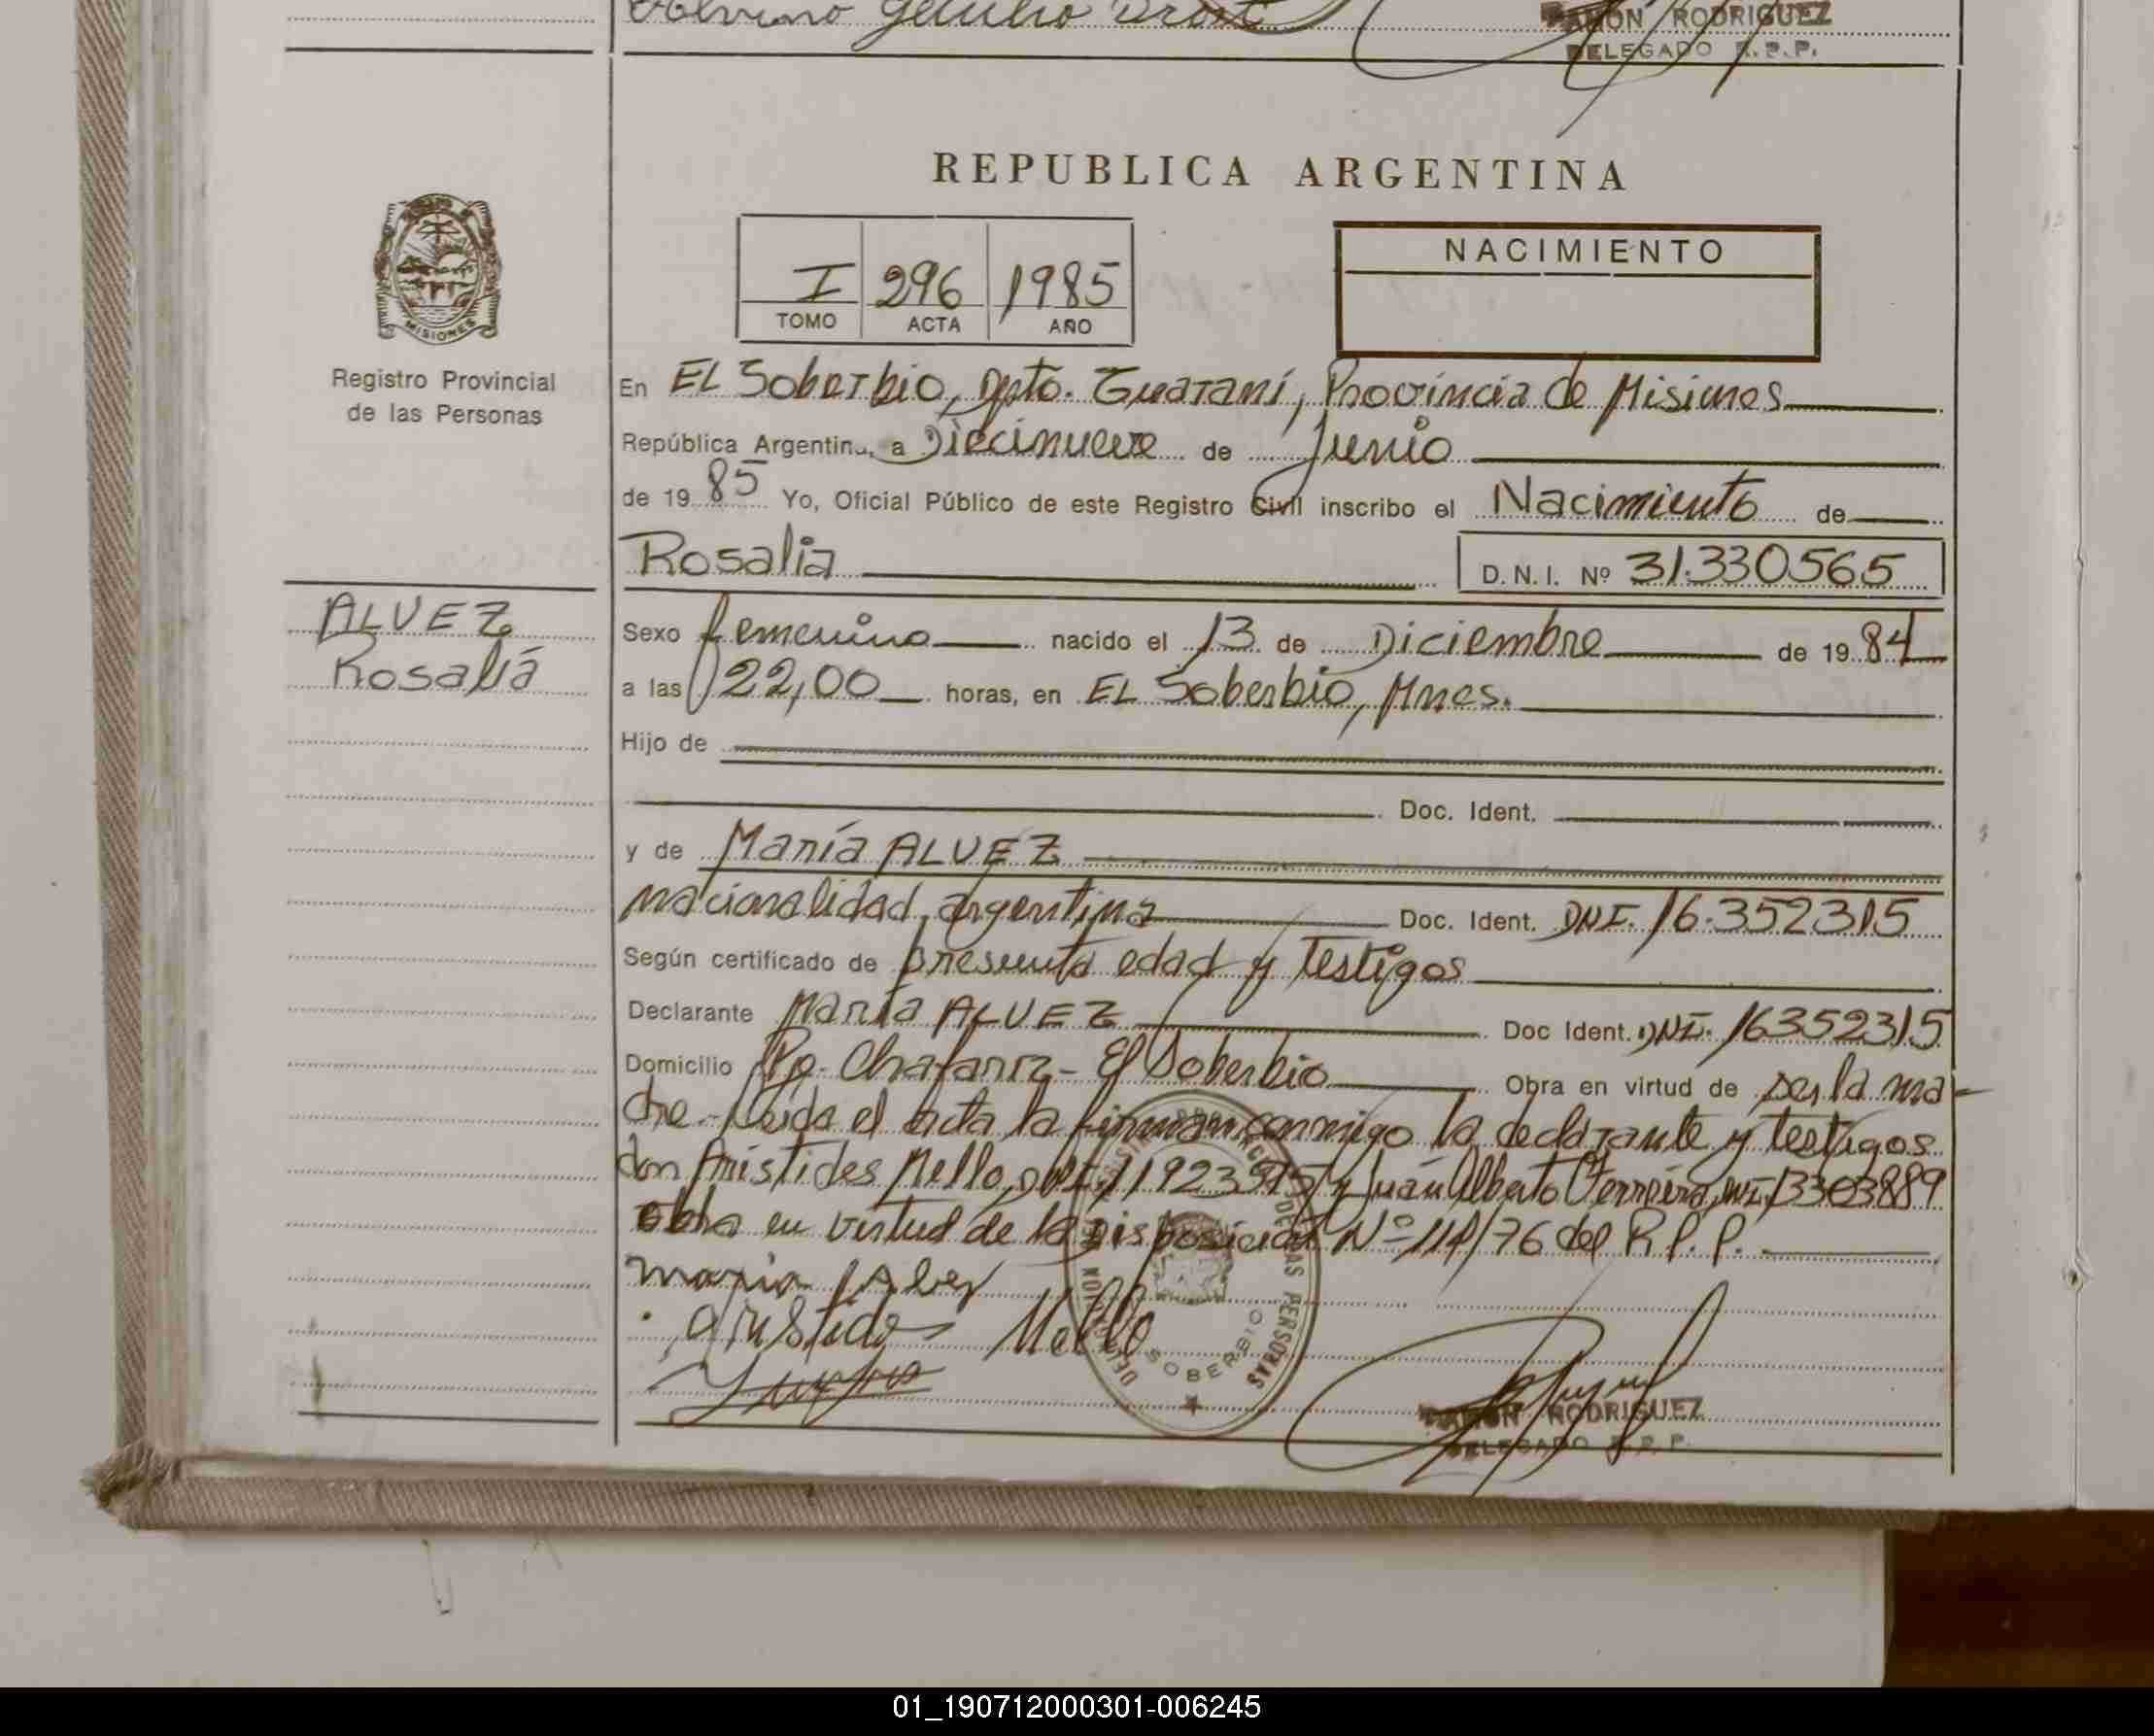 RAMON RODRIGUEZ
DELEGADO R.P.P.
REPUBLICA ARGENTINA
I 296 1985
TOMO ACTA AÑO
NACIMIENTO
MISIONES
Registro Provincial
de las Personas
ALVEZ
Rosaliá
En EL Soberbio, Dpto. Guaraní, Provincia de Misiones
República Argentina, a Diecinueve de Junio
de 1985 Yo, Oficial Público de este Registro Civil inscribo el Nacimiento de
Rosalia D.N.I. Nº 31.330565
Sexo femenino nacido el 13 de Diciembre de 1984
a las 22,00 horas, en EL Soberbio, Mnes.
Hijo de
Doc. Ident.
y de María ALVEZ
nacionalidad argentina Doc. Ident. DNI. 16.352315
Según certificado de presunta edad y testigos
Declarante María ALVEZ Doc Ident. DNI. 16352315
Domicilio Pje. Chafariz - El Soberbio Obra en virtud de ser la ma-
dre.- Leida el acta la firman conmigo la declarante y testigos
don Aristides Mello, DNI 11923515 y Juan Alberto Ferreira, DNI 13303889
obra en virtud de la Disposición Nº 114/76 del R.P.P.
maria Alves
aristides Mello
SOBERBIO
RAMON RODRIGUEZ
DELEGADO R.P.P.
01_190712000301-006245